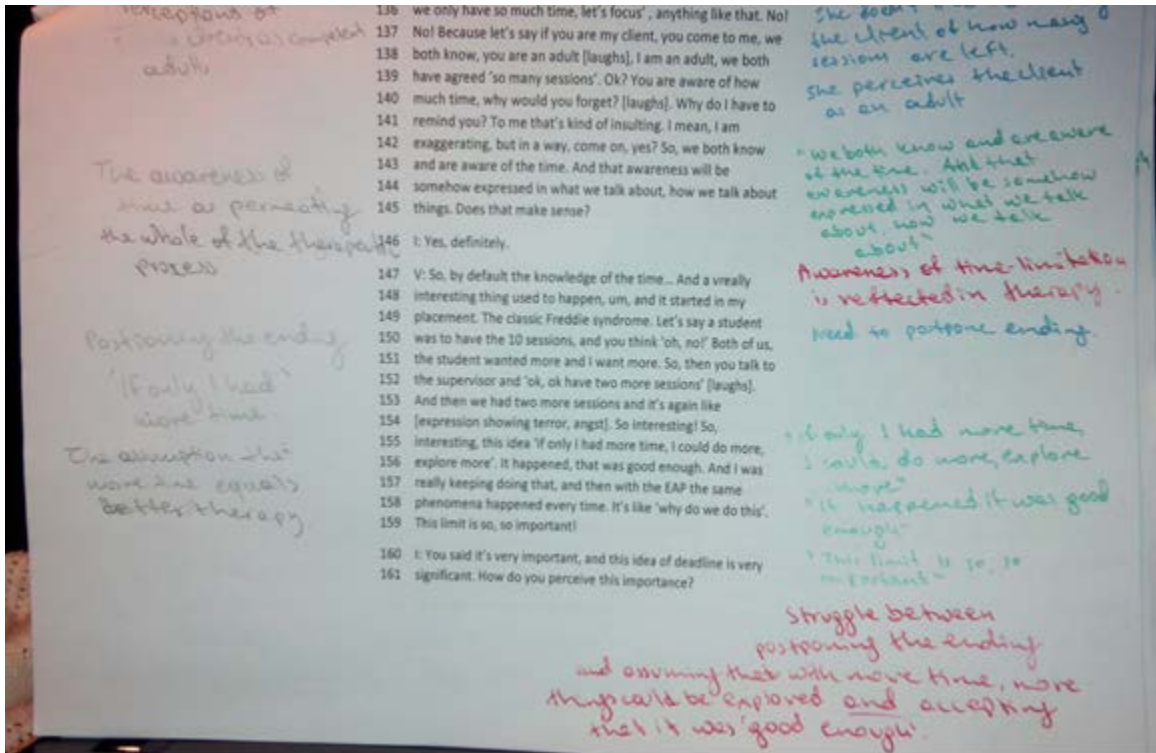 Perceptions of
as competent
adults
136 we only have so much time, let's focus', anything like that. No!
137 No! Because let's say if you are my client, you come to me, we
138 both know, you are an adult [laughs], I am an adult, we both
139 have agreed 'so many sessions'. Ok? You are aware of how
140 much time, why would you forget? [laughs]. Why do I have to
141 remind you? To me that's kind of insulting. I mean, I am
142 exaggerating, but in a way, come on, yes? So, we both know
143 and are aware of the time. And that awareness will be
144 somehow expressed in what we talk about, how we talk about
145 things. Does that make sense?
146 I: Yes, definitely.
147 V: So, by default the knowledge of the time... And a vreally
148 interesting thing used to happen, um, and it started in my
149 placement. The classic Freddie syndrome. Let's say a student
150 was to have the 10 sessions, and you think 'oh, no!' Both of us,
151 the student wanted more and I want more. So, then you talk to
152 the supervisor and 'ok, ok have two more sessions' [laughs].
153 And then we had two more sessions and it's again like
154 [expression showing terror, angst]. So interesting! So,
155 interesting, this idea 'if only I had more time, I could do more,
156 explore more'. It happened, that was good enough. And I was
157 really keeping doing that, and then with the EAP the same
158 phenomena happened every time. It's like 'why do we do this'.
159 This limit is so, so important!
160 I: You said it's very important, and this idea of deadline is very
161 significant. How do you perceive this importance?
The awareness of
time as permeating
the whole of the therapeutic
process
Postponing the ending
'If only I had'
more time
The assumption that
more time equals
better therapy
She doesn't
the client of how many
sessions are left.
She perceives the client
as an adult
"we both know and are aware
of the time. And that
awareness will be somehow
expressed in what we talk
about, how we talk
about"
Awareness of time-limitation
is reflected in therapy.
need to postpone ending.
"if only I had more time,
I could do more, explore
more"
"It happened it was good
enough"
"This limit is so, so
important"
Struggle between
postponing the ending
and assuming that with more time, more
things could be explored and accepting
that it was 'good enough'.